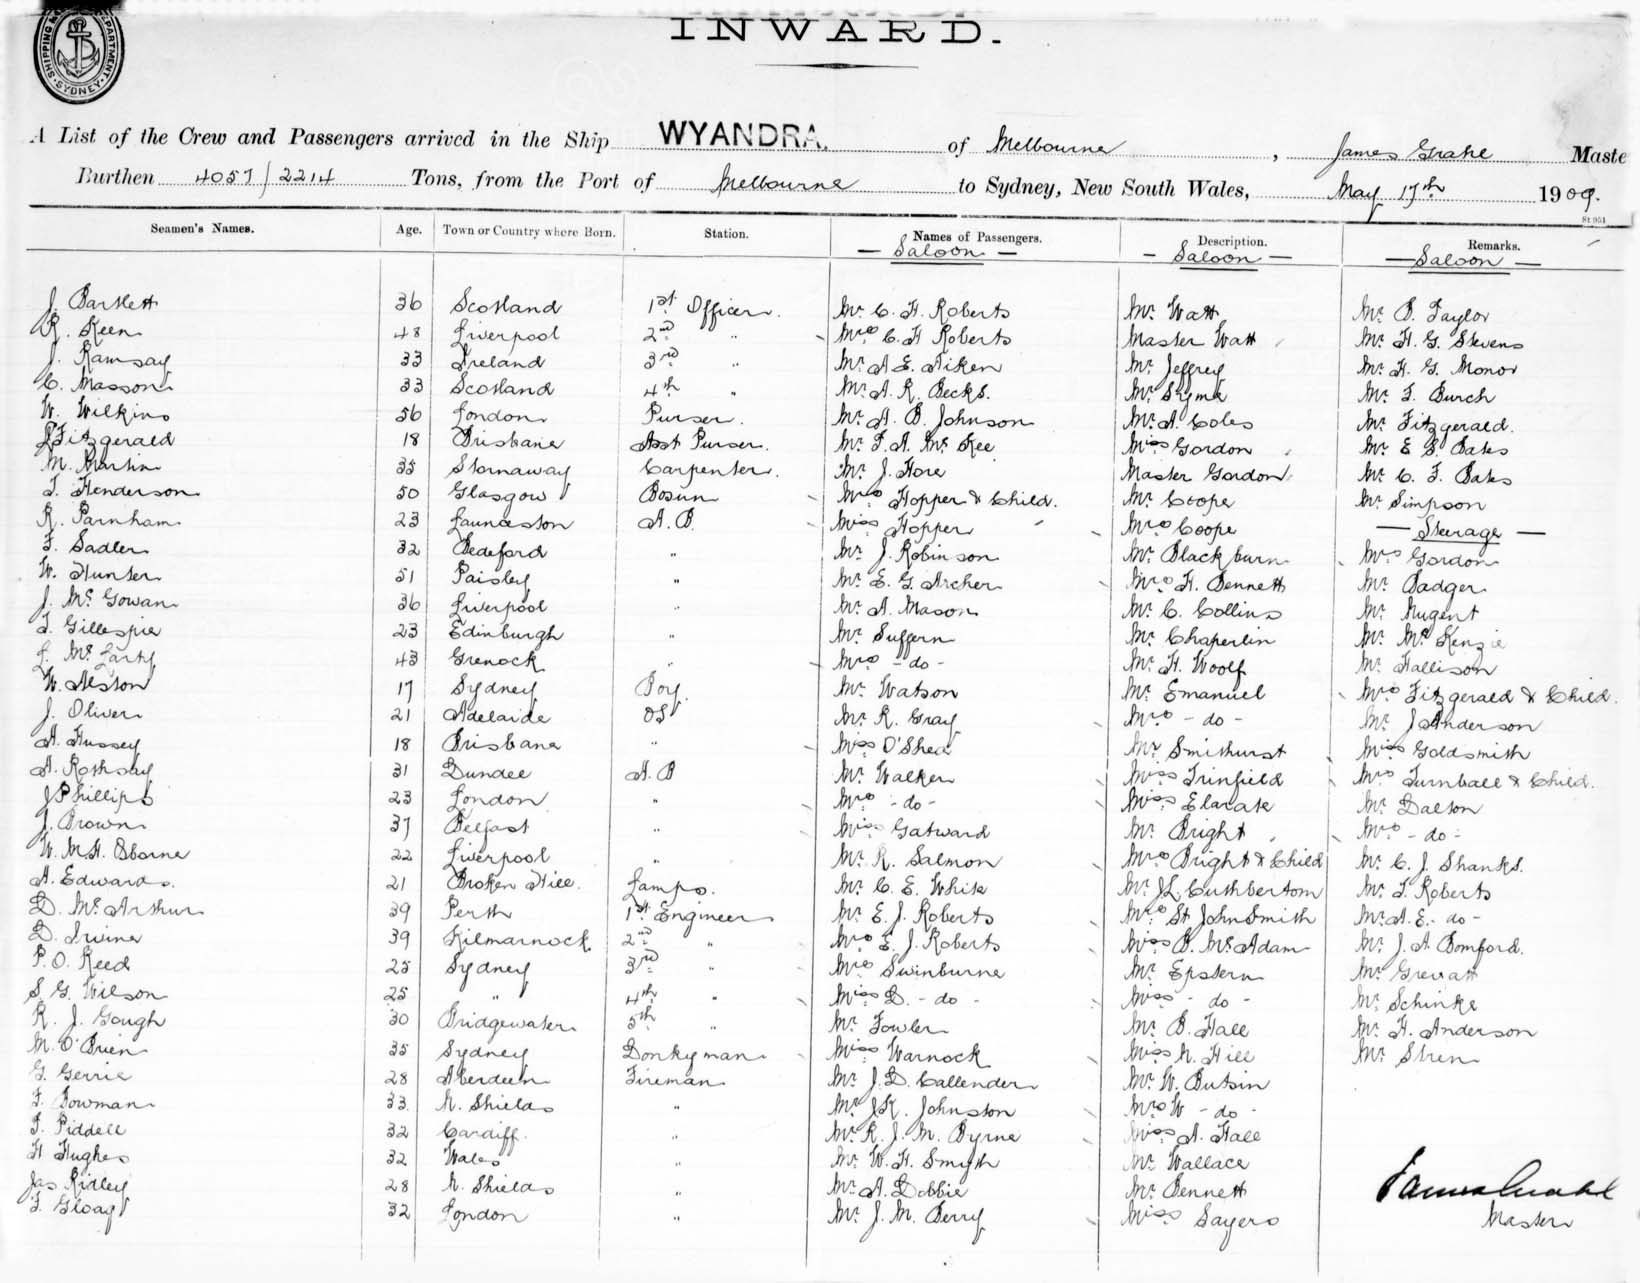 SHIPPING DEPARTMENT SYDNEY
INWARD.
A List of the Crew and Passengers arrived in the Ship WYANDRA. of Melbourne, James Grahl Maste
Burthen 4057/2214 Tons, from the Port of Melbourne to Sydney, New South Wales, May 17th 1909.
St 951
Seamen's Names. Age. Town or Country where Born. Station. Names of Passengers. Description. Remarks.
- Saloon - - Saloon - - Saloon -
J. Bartlett 36 Scotland 1st Officer. Mr. C. H. Roberts Mr. Watt Mr. B. Taylor
R. Keen 48 Liverpool 2nd " Mrs C. H Roberts Master Watt Mr. H. G. Stevens
J. Ramsay 33 Ireland 3rd " Mr. A. E. Aiken Mr. Jeffrey Mr. H. G. Monor
C. Masson 33 Scotland 4th " Mr. A. R. Becks. Mr. Syme Mr. F. Burch
W. Wilkins 56 London Purser. Mr. A. B. Johnson Mr. A. Coles Mr. Fitzgerald.
Fitzgerald 18 Brisbane Asst Purser. Mr. F. A. McKee Miss Gordon Mr. E S. Bates
M. Martin 35 Stornaway Carpenter. Mr. J. Hore Master Gordon Mr. C. F. Bates
T. Henderson 50 Glasgow Bosun Mrs Hopper & Child. Mr. Coope Mr. Simpson
R. Parnham 23 Launceston A. B. Miss Hopper Mrs Coope - Steerage -
F. Sadler 32 Bedeford " Mr. J. Robinson Mr. Blackburn Mrs Gordon
W. Hunter 51 Paisley " Mr. E. G. Archer Mrs H. Bennett Mr. Badger
J. McGowan 36 Liverpool " Mr. A. Mason Mr. C. Collins Mr. Nugent
T. Gillespie 23 Edinburgh " Mr. Suffern Mr. Chaperlin Mr. McKenzie
L. McLarty 43 Grenock " Mrs - do - Mr. H. Woolf Mr. Hallison
W. Alston 17 Sydney Boy. Mr. Watson Mr. Emanuel Mrs Fitzgerald & Child.
J. Oliver 21 Adelaide OS Mr. R. Gray Mrs - do - Mr. J Anderson
A. Hussey 18 Brisbane " Miss O'Shea Mr. Smithurst Miss Goldsmith
A. Rothsay 31 Dundee A. B Mr. Walker Miss Trinfield Mrs Turnball & Child.
J Phillips 23 London " Mrs - do - Miss Mr. Dalton
J. Brown 37 Belfast " Miss Gatward Mr. Bright Mrs - do -
W. M. H. Osborne 22 Liverpool " Mr. R. Salmon Mrs Bright & Child Mr. C. J. Shanks.
A. Edwards. 21 Broken Hill. Lamps. Mr. C. E. White Mr. J L. Cuthbertson Mr. T. Roberts
D. McArthur 39 Perth 1st Engineer Mr. E. J. Roberts Mrs St John Smith Mr. A. E. - do -
D. Irvine 39 Kilmarnock 2nd " Mrs E. J. Roberts Miss B. McAdam Mr. J. A Bomford.
P. O. Reed 25 Sydney 3rd " Mrs Swinburne Mr. Epstern Mr. Grevatt
S. G. Wilson 25 " 4th " Miss D. - do - Miss - do - Mr. Schinke
R. J. Gough 30 Bridgewater 5th " Mr. Fowler Mr. B. Hall Mr. H. Anderson
M. O'Brien 35 Sydney Donkyman Miss Warnock Miss N. Hill Mr. Stren
G. Gerrie 28 Aberdeen Fireman Mr. J. D. Callender Mr. W. Butsin
F. Bowman 33 N. Shields " Mr. J K. Johnston Mrs W - do -
F. Piddell 32 Cardiff. " Mr. R. J. M. Byrne Miss A. Hall
H Hughes 32 Wales " Mr. W. H. Smyth Mr. Wallace
Jas Ridley 28 N. Shields " Mr. A. Dobbie Mr. Bennett James Grahl
F. Gloag 32 London " Mr. J. M. Berry Miss Sayers Master